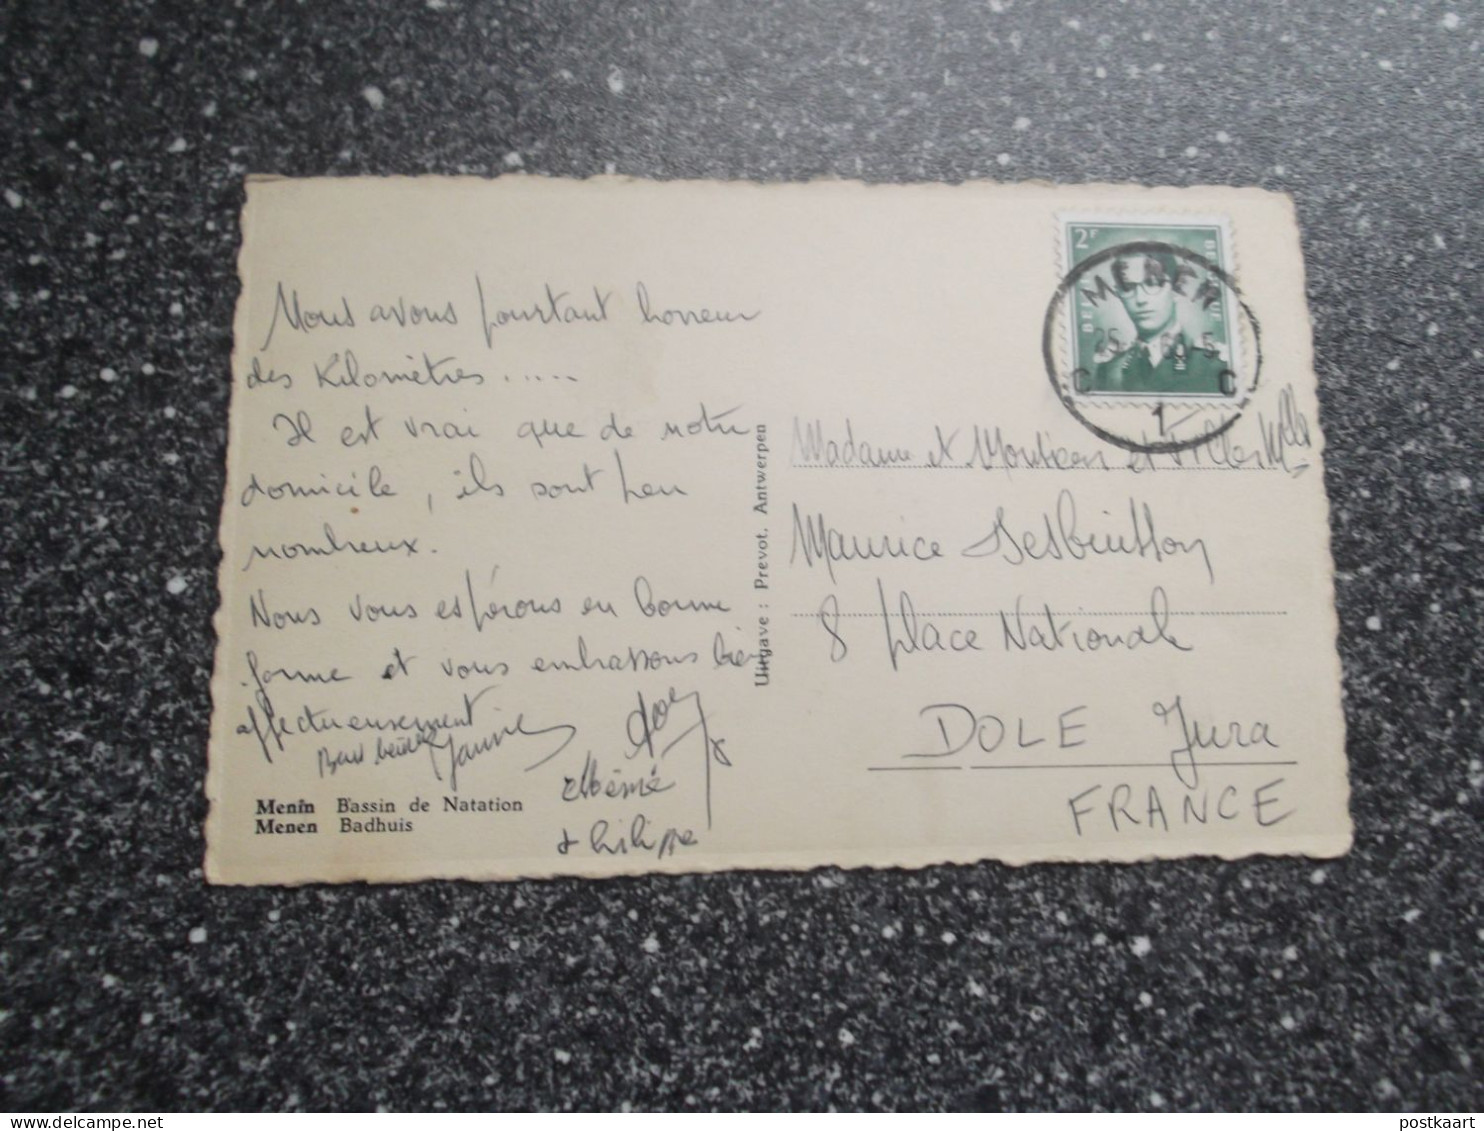 Nous avons pourtant horreur
des Kilomètres .....
Il est vrai que de notre
domicile, ils sont peu
nombreux.
Nous vous espérons en bonne
forme et vous embrassons bien
affectueusement
Mémé
Philippe
Menin Bassin de Natation
Menen Badhuis
Uitgave : Prevot. Antwerpen
2F
MENEN
C C
1
Madame et Monsieur et
Maurice Desbuisson
8 place Nationale
DOLE Jura
FRANCE
www.delcampe.net
postkaart